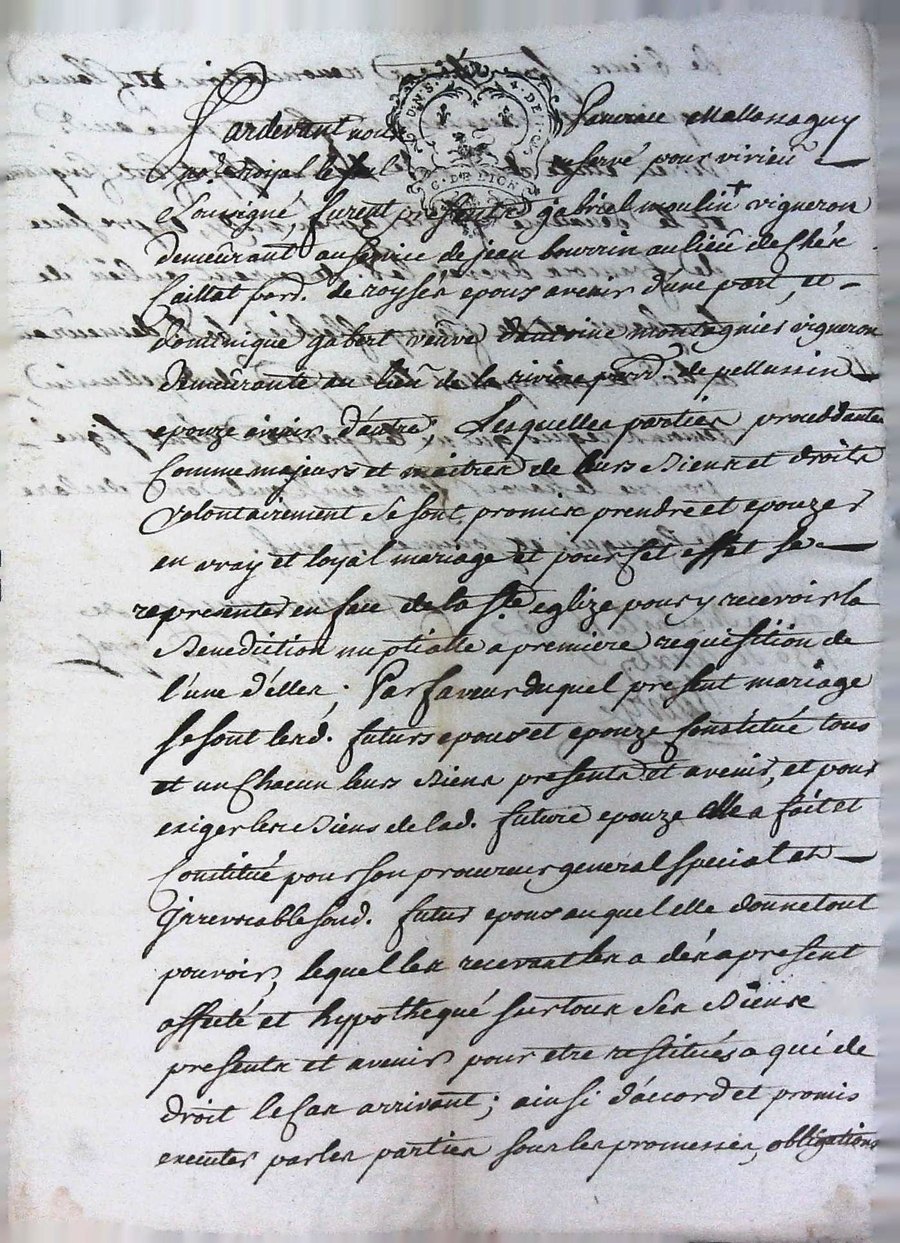 Pardevant nous
notre royal reservé pour vivieu
soussigné, furent presents gabriel moulin + vigneron
demeurant au service de jean bourrin au lieu de chéz
Caillat parr. de roysey epoux avenir d'une part, et
dominique gabert veuve d'antoine montagnier vigneron
demeurante au lieu de la riviere parr. de pellussin
epouze avenir d'autre; Lesquelles parties procédantes
Comme majeurs et maitres de leurs Biens et droits
volontairement se sont promis prendre et epouzer
en vray et loyal mariage et pour cet effet se
representer en face de la Ste eglize pour y recevoir la
Benediction nuptialle a premiere requisition de
l'une d'elles; Par faveur duquel present mariage
se sont lesd. futurs epoux et epouze Constitué tous
et un Chacun leurs Biens presents et avenir, et pour
exiger les Biens de lad. future epouze elle a fait et
Constitué pour son procureur general special et
Irrevocable sond. futur epoux auquel elle donne tout
pouvoir, lequel les recevant les a dés a present
affecté et hypothequé sur tous ses Biens
presents et avenir pour etre restitués a qui de
droit le Cas arrivant; ainsi d'accord et promis
executer par les parties sous les promesses, obligations